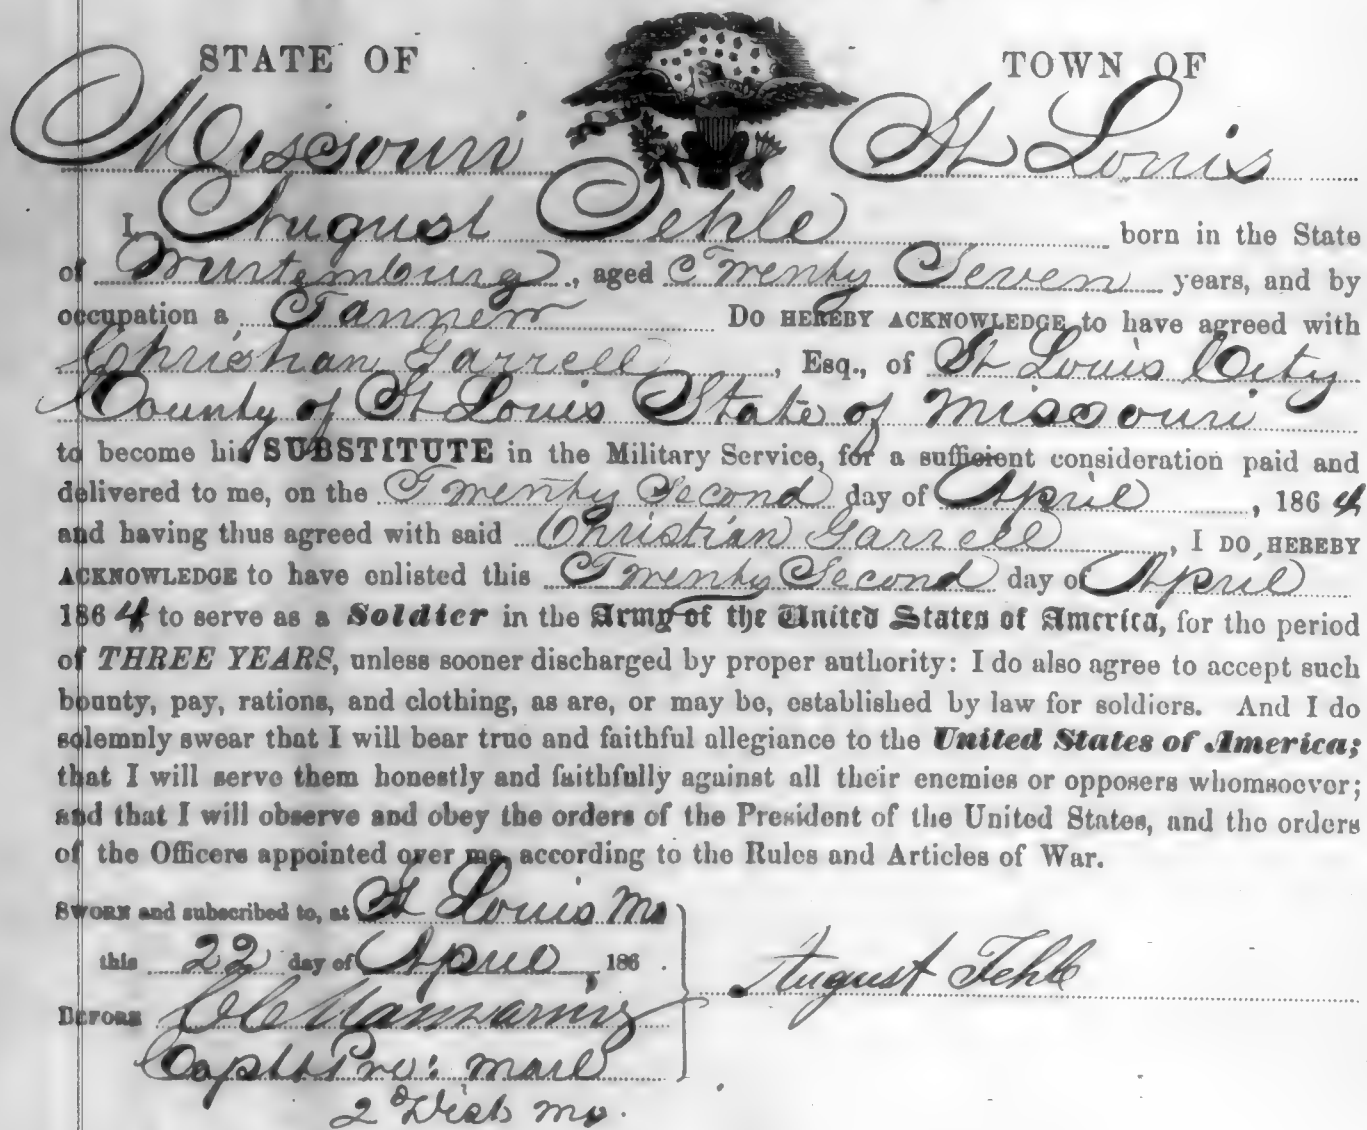 STATE OF TOWN OF
Missouri St Louis
I, August Fehle born in the State
of Wurtemburg, aged Twenty Seven years, and by
occupation a Tanner DO HEREBY ACKNOWLEDGE to have agreed with
Christian Garrell, Esq., of St Louis City
County of St Louis State of Missouri
to become his SUBSTITUTE in the Military Service, for a sufficient consideration paid and
delivered to me, on the Twenty Second day of April, 1864
and having thus agreed with said Christian Garrell, I DO HEREBY
ACKNOWLEDGE to have enlisted this Twenty Second day of April
1864 to serve as a Soldier in the Army of the United States of America, for the period
of THREE YEARS, unless sooner discharged by proper authority: I do also agree to accept such
bounty, pay, rations, and clothing, as are, or may be, established by law for soldiers. And I do
solemnly swear that I will bear true and faithful allegiance to the United States of America;
that I will serve them honestly and faithfully against all their enemies or opposers whomsoever;
and that I will observe and obey the orders of the President of the United States, and the orders
of the Officers appointed over me, according to the Rules and Articles of War.
SWORN and subscribed to, at St Louis Mo
this 22 day of April, 186 .
August Fehle
BEFORE
Capt & Pro: Marl
2d Dist Mo.